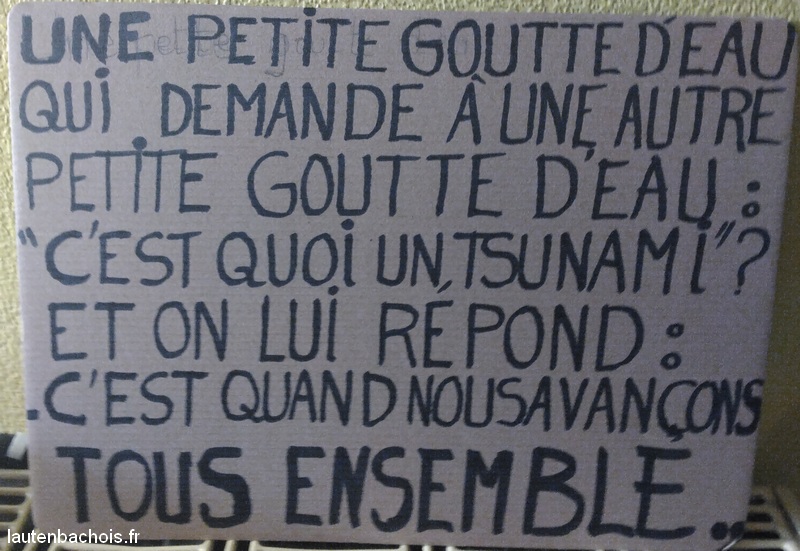 UNE PETITE GOUTTE D'EAU
QUI DEMANDE À UNE AUTRE
PETITE GOUTTE D'EAU :
"C'EST QUOI UN TSUNAMI" ?
ET ON LUI RÉPOND :
.C'EST QUAND NOUS AVANÇONS
TOUS ENSEMBLE..
lautenbachois.fr